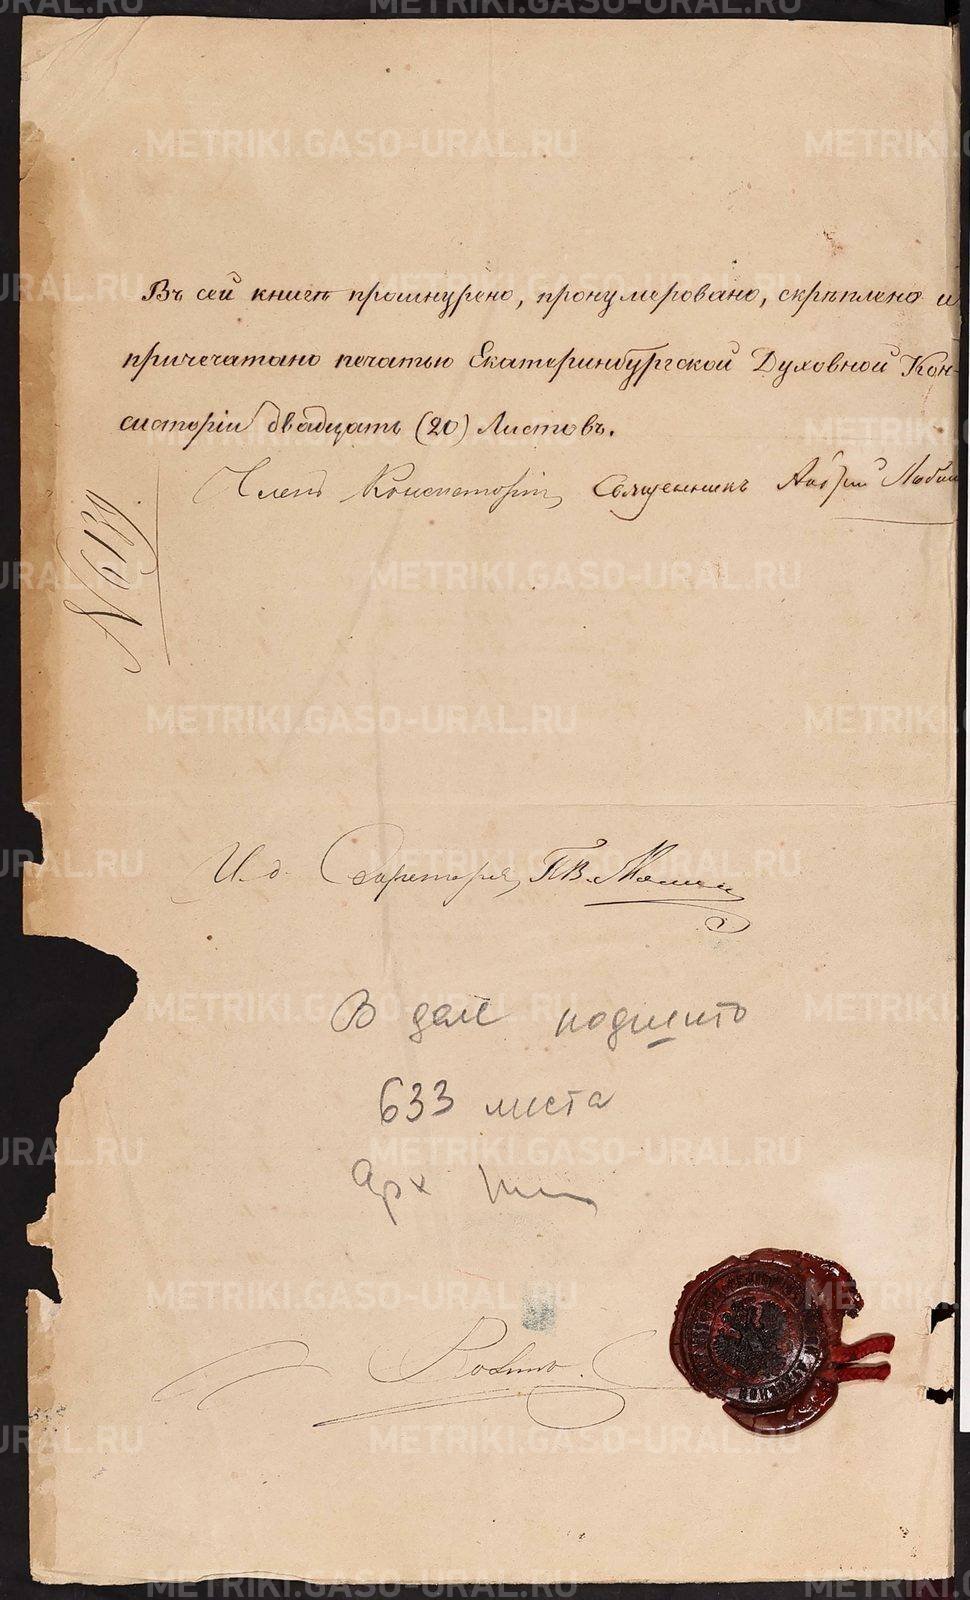 Въ сей книгѣ прошнурено, пронумеровано, скрѣплено и
припечатано печатью Екатеринбургской Духовной Кон-
систоріи двадцать (20) листовъ.
Членъ Консисторіи, Священникъ
N 6139
И. д. Секретаря,
В деле подшито
633 листа
Арх
METRIKI.GASO-URAL.RU